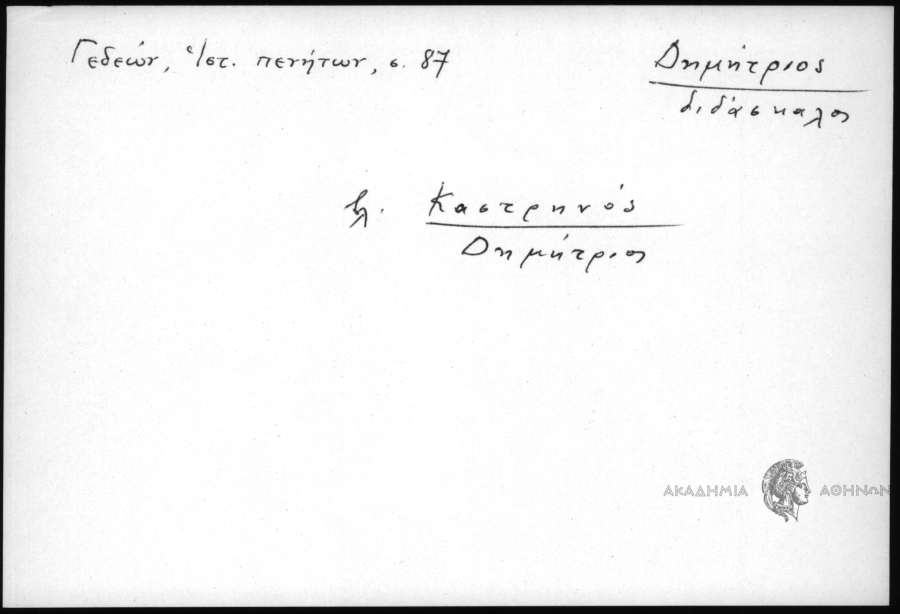 Γεδεών, Ἱστ. πενήτων, σ. 87
Δημήτριος
διδάσκαλος
βλ. Καστρηνός
Δημήτριος
ΑΚΑΔΗΜΙΑ ΑΘΗΝΩΝ